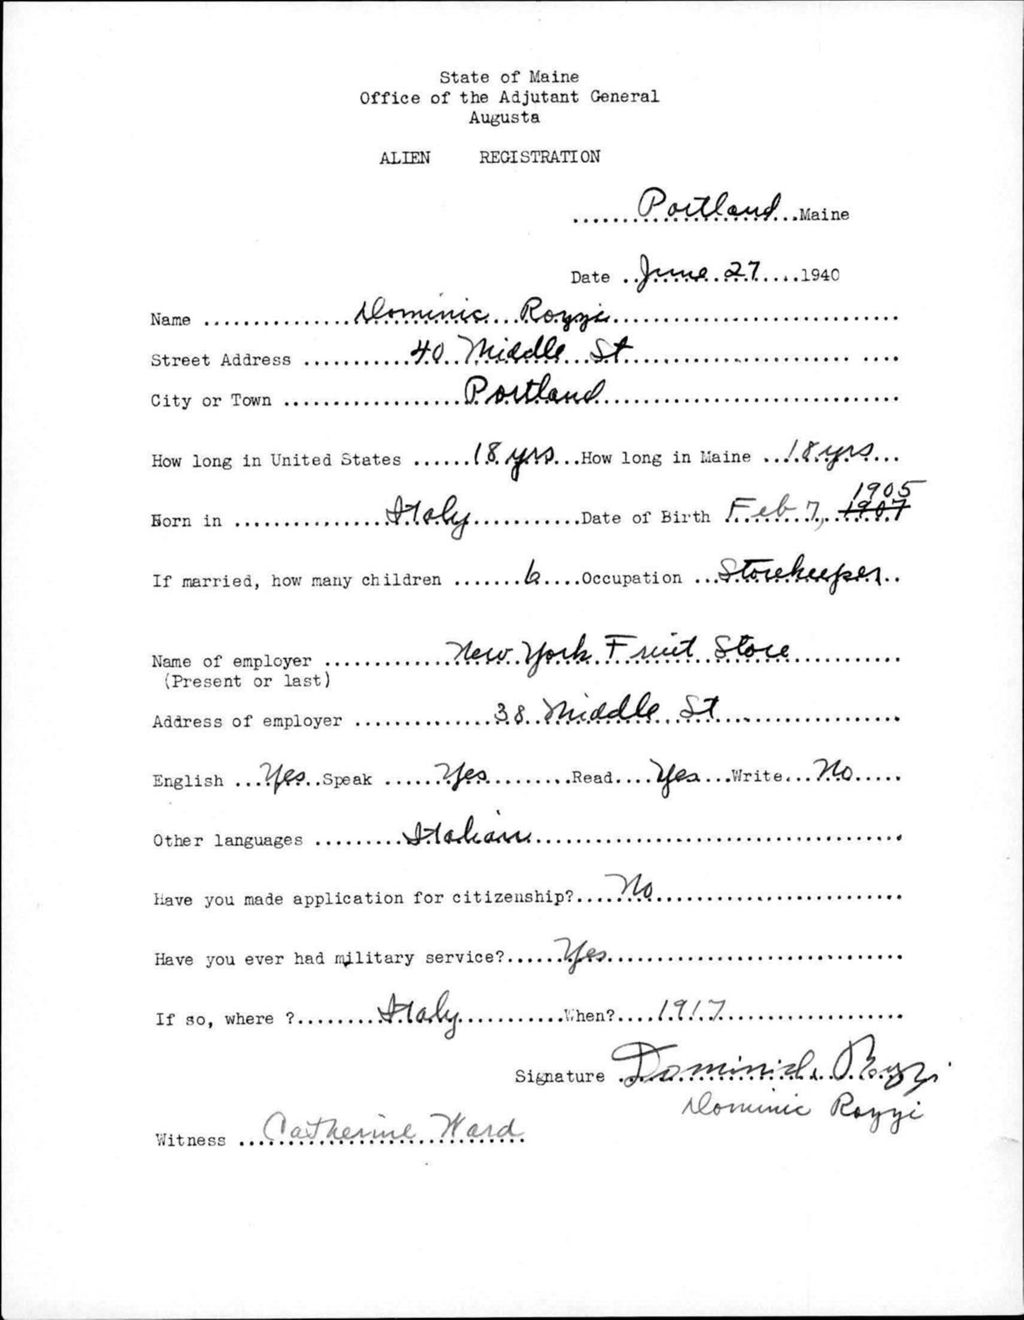 State of Maine
Office of the Adjutant General
Augusta
ALIEN REGISTRATION
......Portland...Maine
Date ..June 27....1940
Name ...............Dominic Rozzi.............................
Street Address ..........40 Middle St........................... ....
City or Town ..................Portland..............................
How long in United States ......18 yrs...How long in Maine ..18 yrs...
1905
Born in ................Italy...........Date of Birth Feb 7, 1907
If married, how many children .......6....Occupation ...Storekeeper..
Name of employer .............New York Fruit Store...........
(Present or last)
Address of employer ..............38 Middle St..................
English ...Yes..Speak .....Yes.........Read....Yes...Write...No.....
Other languages .........Italian.....................................
Have you made application for citizenship?....No.........................
Have you ever had military service?......Yes..............................
If so, where ?........Italy...........When?....1917..................
Signature .Dominick Rozzi
Dominic Rozzi
Witness ...Catherine Ward